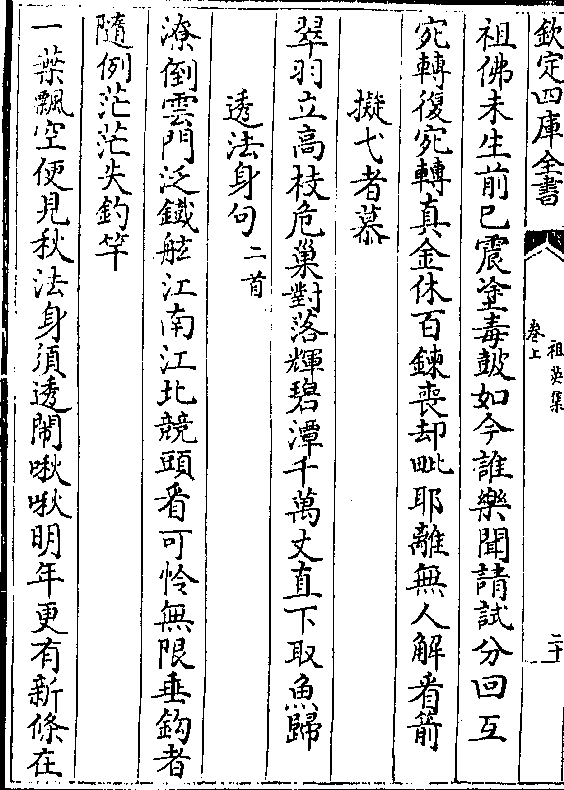 欽定四庫全書
祖英集
卷上
二十
祖佛未生前已震塗毒皷如今誰樂聞請試分回互
宛轉復宛轉真金休百鍊喪却毗耶離無人解看箭
擬弋者慕
翠羽立高枝危巢對落輝碧潭千萬丈直下取魚歸
透法身句二首
潦倒雲門泛鐵舷江南江北競頭看可怜無限垂鈎者
隨例茫茫失釣竿
一葉飄空便見秋法身須透鬧啾啾明年更有新條在